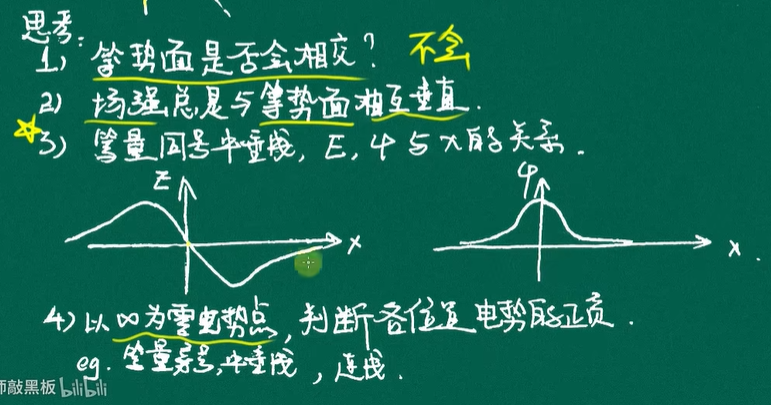 思考:
1) 等势面是否会相交? 不会
2) 场强总是与等势面相互垂直.
3) 等量同号中垂线, E, φ与x的关系.
E
x
φ
x.
4) 以∞为零电势点, 判断各位置电势的正负.
eg. 等量异号,中垂线, 连线.
师敲黑板 bilibili